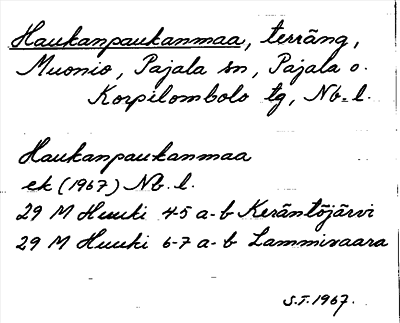 Haukanpaukanmaa, terräng,
Muonio, Pajala sn, Pajala o.
Korpilombolo tg, Nb. l.
Haukanpaukanmaa
ek (1967) Nb. l.
29 M Huuki 4-5 a-b Keräntöjärvi
29 M Huuki 6-7 a-b Lammivaara
S.T. 1967.